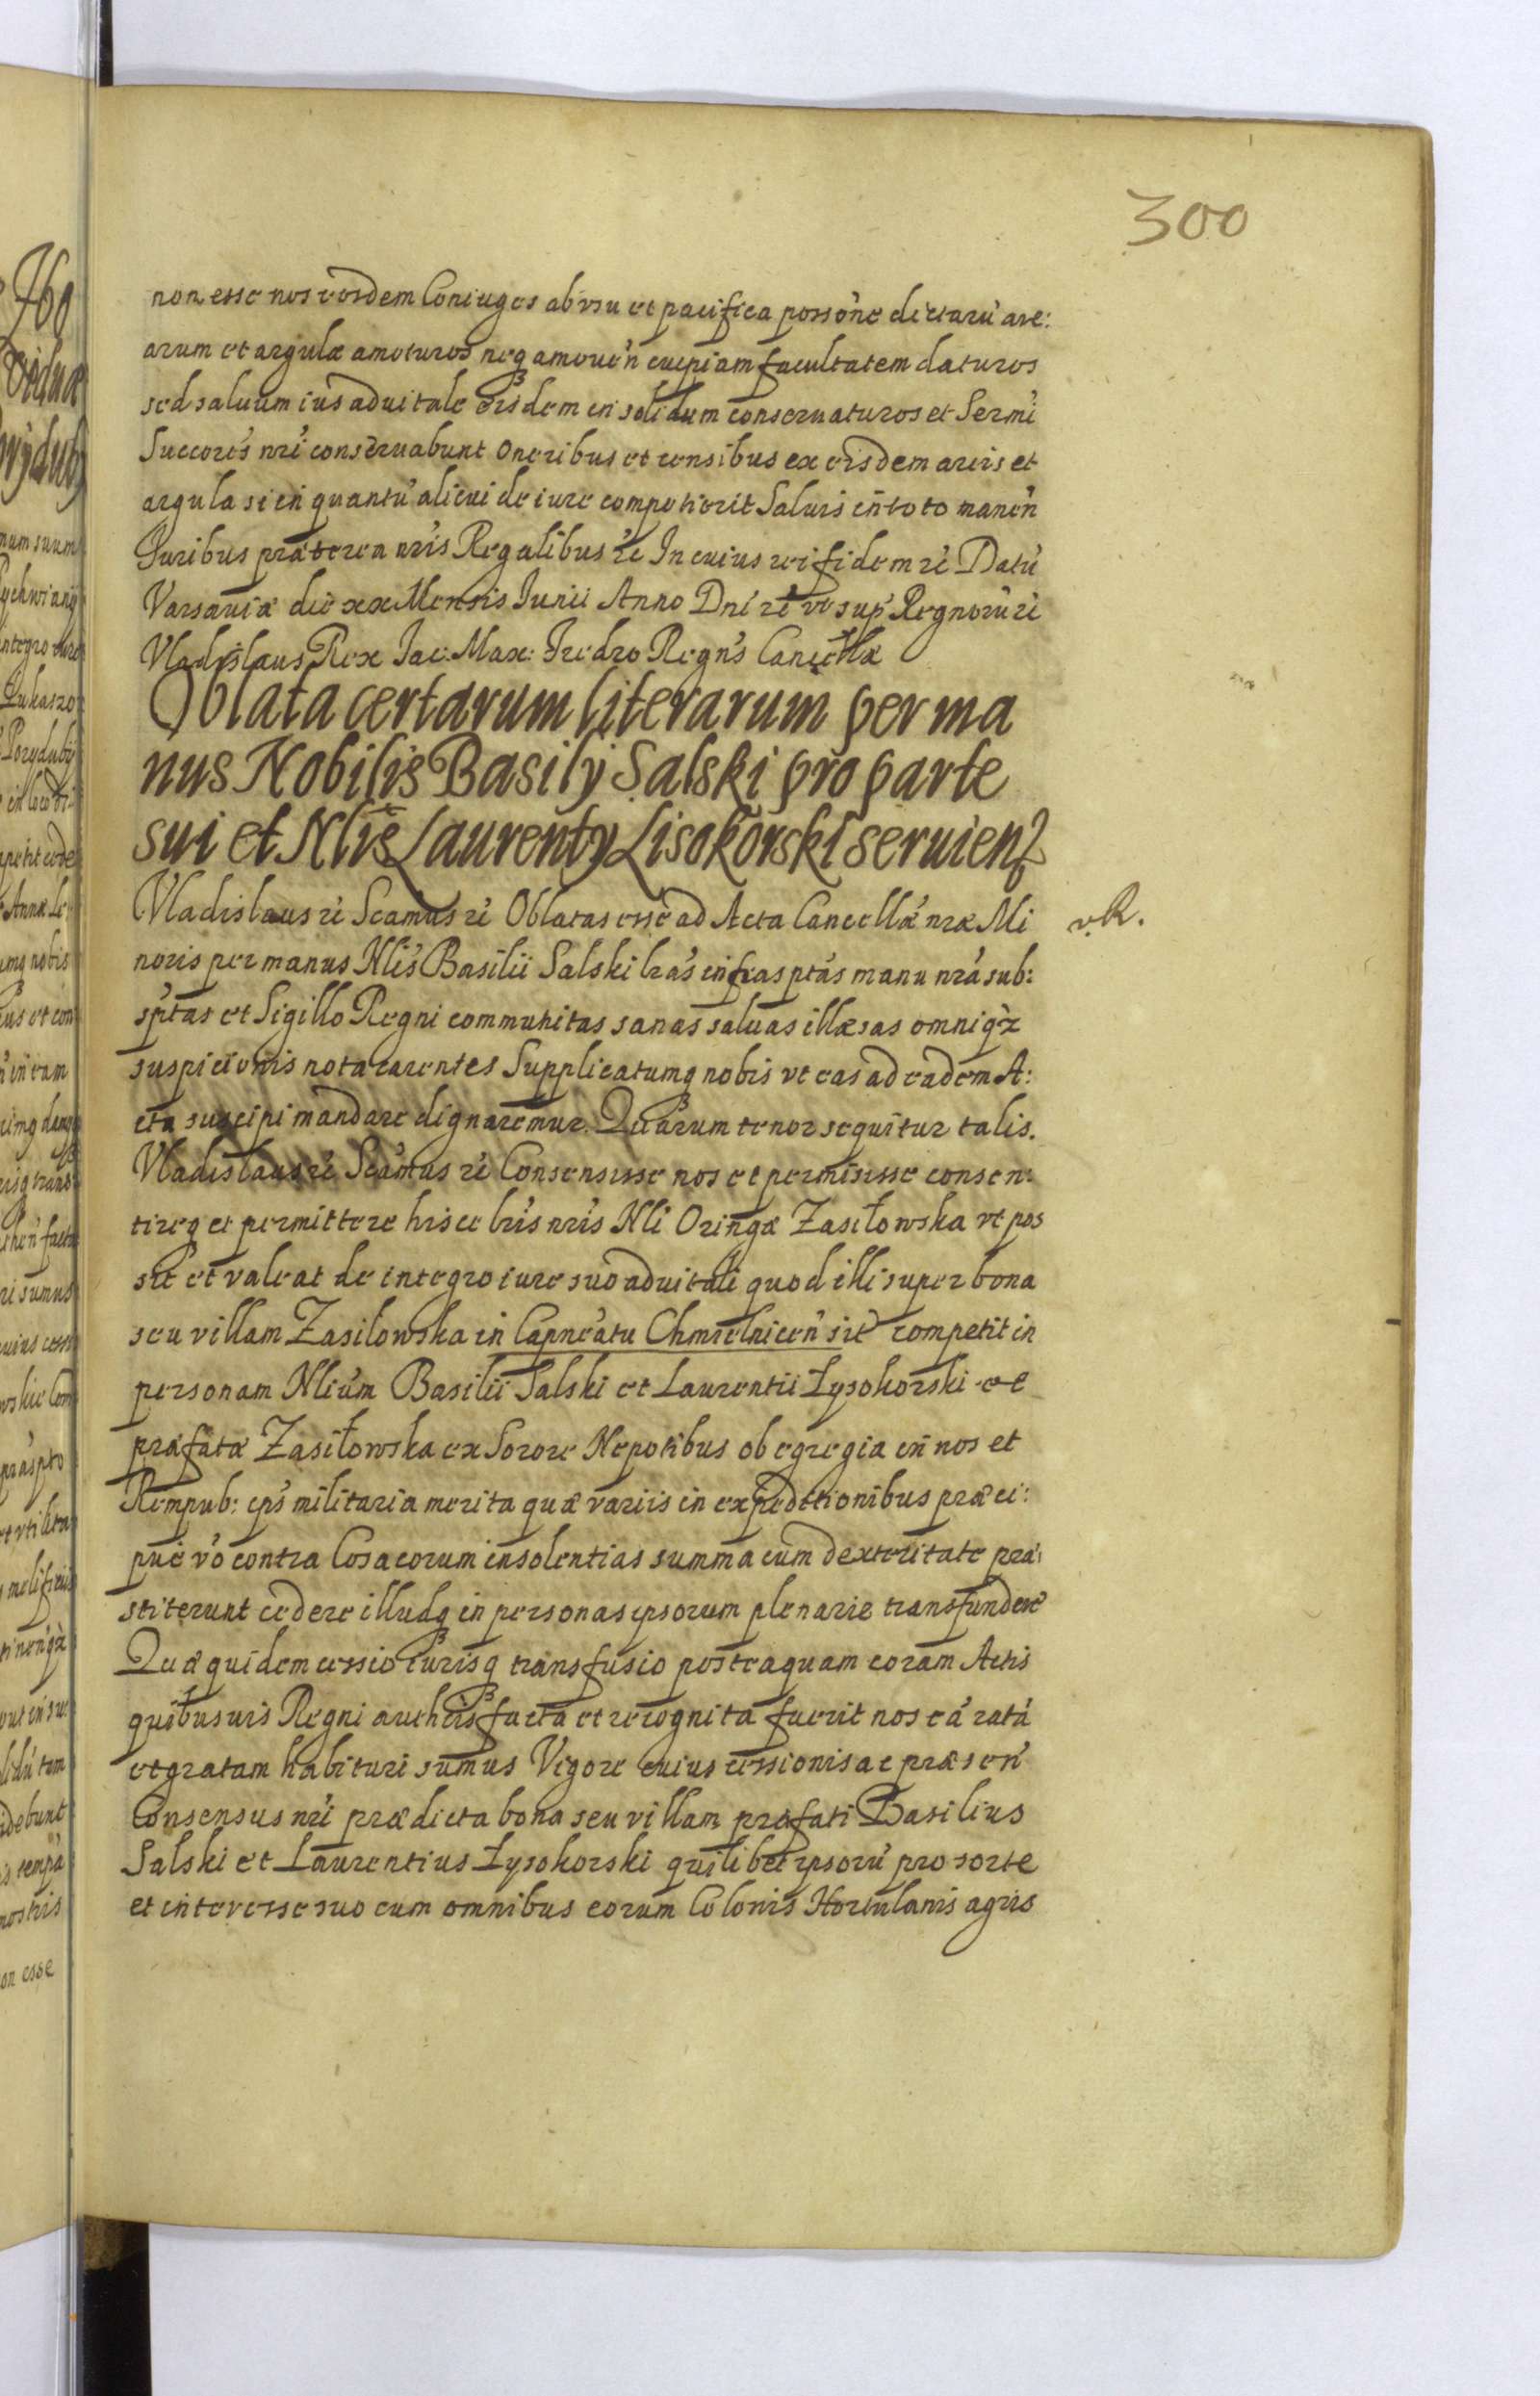 300
non esse nos eosdem Coniuges ab vsu et pacifica possõne dictarũ are:
arum et argulæ amoturos neq amouẽn cuipiam facultatem daturos
sed saluum ius aduitale eisdem in solidum conseruaturos et Sermi
Succores nri conseruabunt Oneribus et censibus ex eisdem areis et
argula si in quantũ alicui de iure competierit Saluis in toto manen
Iuribus præterea nris Regalibus rc In cuius rei fidem rc Datũ
Varsauiæ die xx Mensis Iunii Anno Dni rc vt sup Regnorũ rc
Vladislaus Rex Iac: Max: Fredro Regns Cancellæ
Oblata certarum literarum per ma
nus Nobilis Basily Salski pro parte
sui et Nlis Laurenty Lisokorski seruien
Vladislaus rc Scamus rc Oblatas esse ad Acta Cancellæ nræ Mi
noris per manus Nlis Basilii Salski lras infrasptas manu nra sub:
sptas et Sigillo Regni communitas sanas saluas illæsas omniq
suspicionis nota carentes Supplicatumq nobis vt eas ad eadem A:
cta suscipi mandare dignaremur. Quarum tenor sequitur talis.
Vladislaus rc Scamus rc Consensisse nos et permisisse consen:
tireq et permittere hisce lris nris Nli Oringæ Zasiłowska vt pos
sit et valeat de integro iure suo aduitali quod illi super bona
seu villam Zasiłowska in Capneatu Chmielnicen sit competit in
personam Nlium Basilii Salski et Laurentii Łysokorski
præfatæ Zasiłowska ex Sorore Nepotibus ob egregia in nos et
Rempub: eps militaria merita quæ variis in expeditionibus præci:
pue vo contra Cosacorum insolentias summa cum dexteritate præ:
stiterunt cedere illudq in personas ipsorum plenarie transfundere
Quæ quidem cessio iurisq transfusio posteaquam coram Actis
quibusuis Regni autheis facta et recognita fuerit nos eã ratã
et gratam habituri sumus Vigore cuius cessionis ac præsen
Consensus nri prædicta bona seu villam præfati Basilius
Salski et Laurentius Łysokorski quilibet ipsorũ pro sorte
et interesse suo cum omnibus eorum Colonis Hortulanis agris